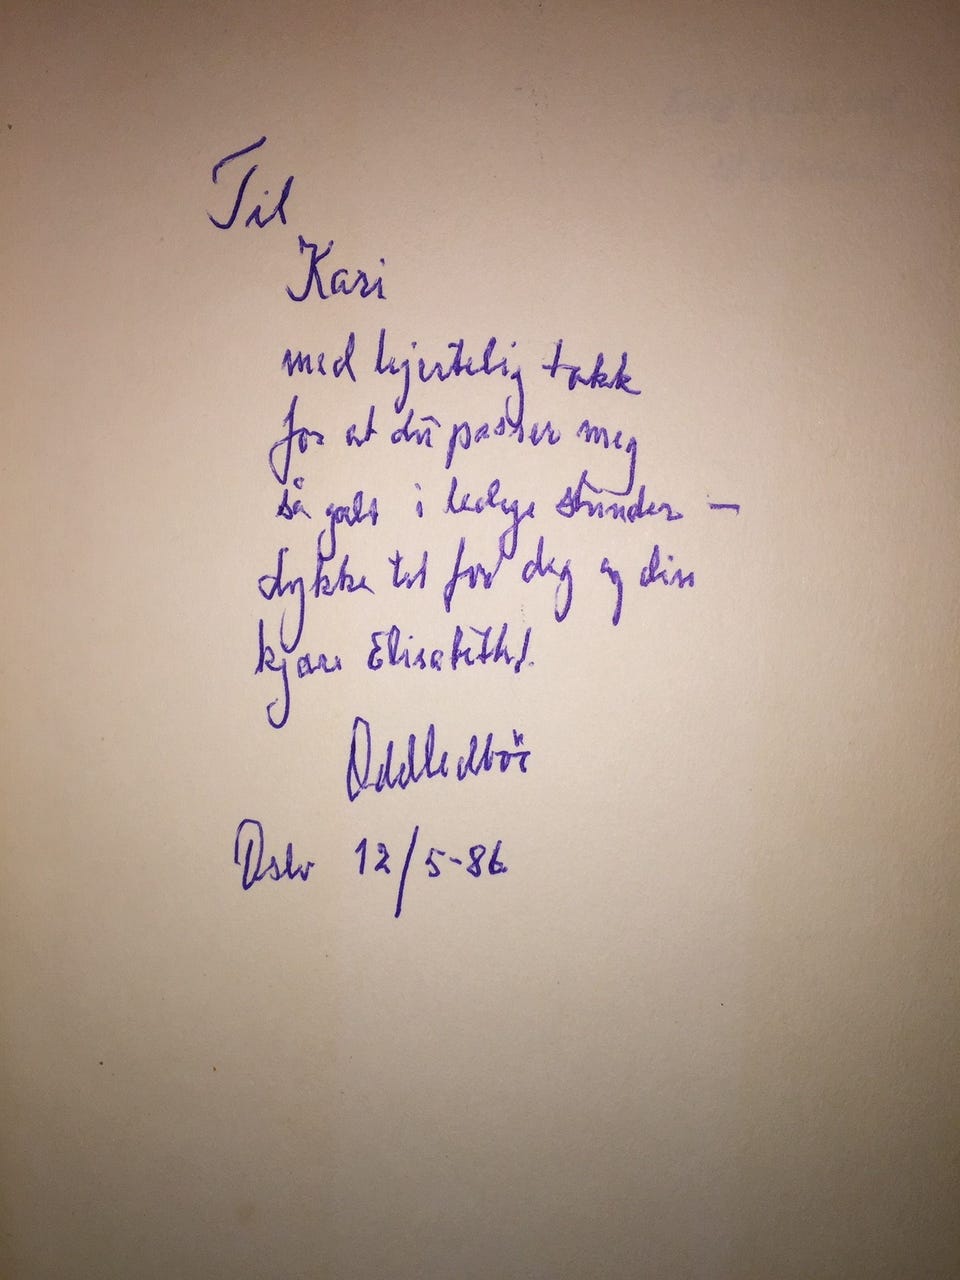 Til
Kari
med hjertelig takk
for at du passer meg
så godt i ledige stunder —
Lykke til for deg og din
kjære Elisabeth!
Odd
Oslo 12/5-86